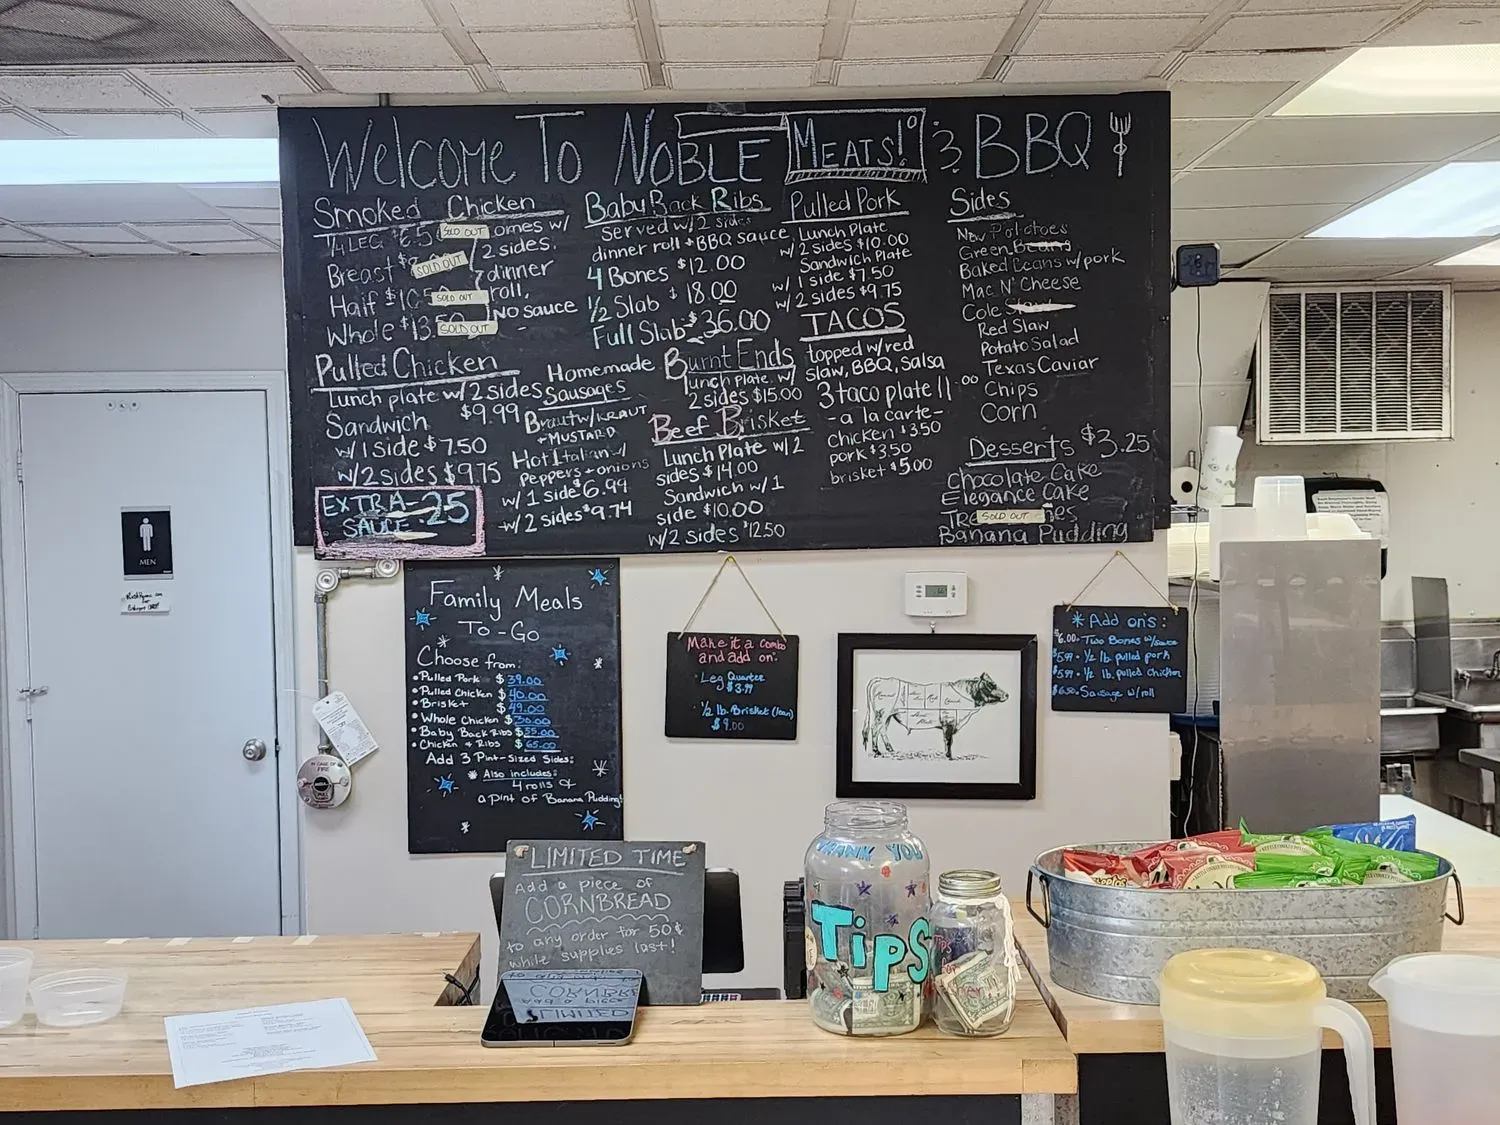 WELCOME TO NOBLE MEATS! & BBQ
Smoked Chicken
1/4 LEG $6.5 SOLD OUT
Breast SOLD OUT
Half $10.5 SOLD OUT
Whole $13.50 SOLD OUT
comes w/
2 sides,
dinner
roll,
NO sauce
Pulled Chicken
Lunch plate w/ 2 sides
$9.99
Sandwich
w/ 1 side $7.50
w/ 2 sides $9.75
EXTRA .25
SAUCE
Baby Back Ribs
Served w/ 2 sides
dinner roll + BBQ sauce
4 Bones $12.00
1/2 Slab $18.00
Full Slab $36.00
Homemade
Sausages
Brautw/KRAUT
+ MUSTARD
Hot Italian w/
Peppers + onions
w/ 1 side $6.99
w/ 2 sides $9.74
Burnt Ends
lunch plate w/
2 sides $15.00
Beef Brisket
Lunch Plate w/ 2
sides $14.00
Sandwich w/ 1
side $10.00
w/ 2 sides $12.50
Pulled Pork
Lunch Plate
w/ 2 sides $10.00
Sandwich Plate
w/ 1 side $7.50
w/ 2 sides $9.75
TACOS
topped w/red
slaw, BBQ, Salsa
3 taco plate 11.00
- a la carte -
chicken $3.50
pork $3.50
brisket $5.00
Sides
New Potatoes
Green Beans
Baked Beans w/pork
Mac N' Cheese
Cole Slaw
Red Slaw
Potato Salad
Texas Caviar
Chips
Corn
Desserts $3.25
Chocolate Cake
Elegance Cake
Tre SOLD OUT es
Banana Pudding
MEN
Family Meals
To-Go
Choose from:
• Pulled Pork $39.00
• Pulled Chicken $40.00
• Brisket $49.00
• Whole Chicken $30.00
• Baby Back Ribs $55.00
• Chicken & Ribs $65.00
Add 3 Pint-Sized Sides:
* Also includes:
4 rolls &
a pint of Banana Pudding!
Make it a combo
and add on:
Leg Quarter
$3.99
1/2 lb. Brisket (lean)
$9.00
* Add ons:
$6.00 • Two Bones w/sauce
$5.99 • 1/2 lb. pulled pork
$5.99 • 1/2 lb. pulled chicken
$6.50 • Sausage w/roll
IN CASE OF
FIRE
LIMITED TIME
Add a piece of
CORNBREAD
to any order for 50¢
while supplies last!
THANK YOU
TIPS
TIPS